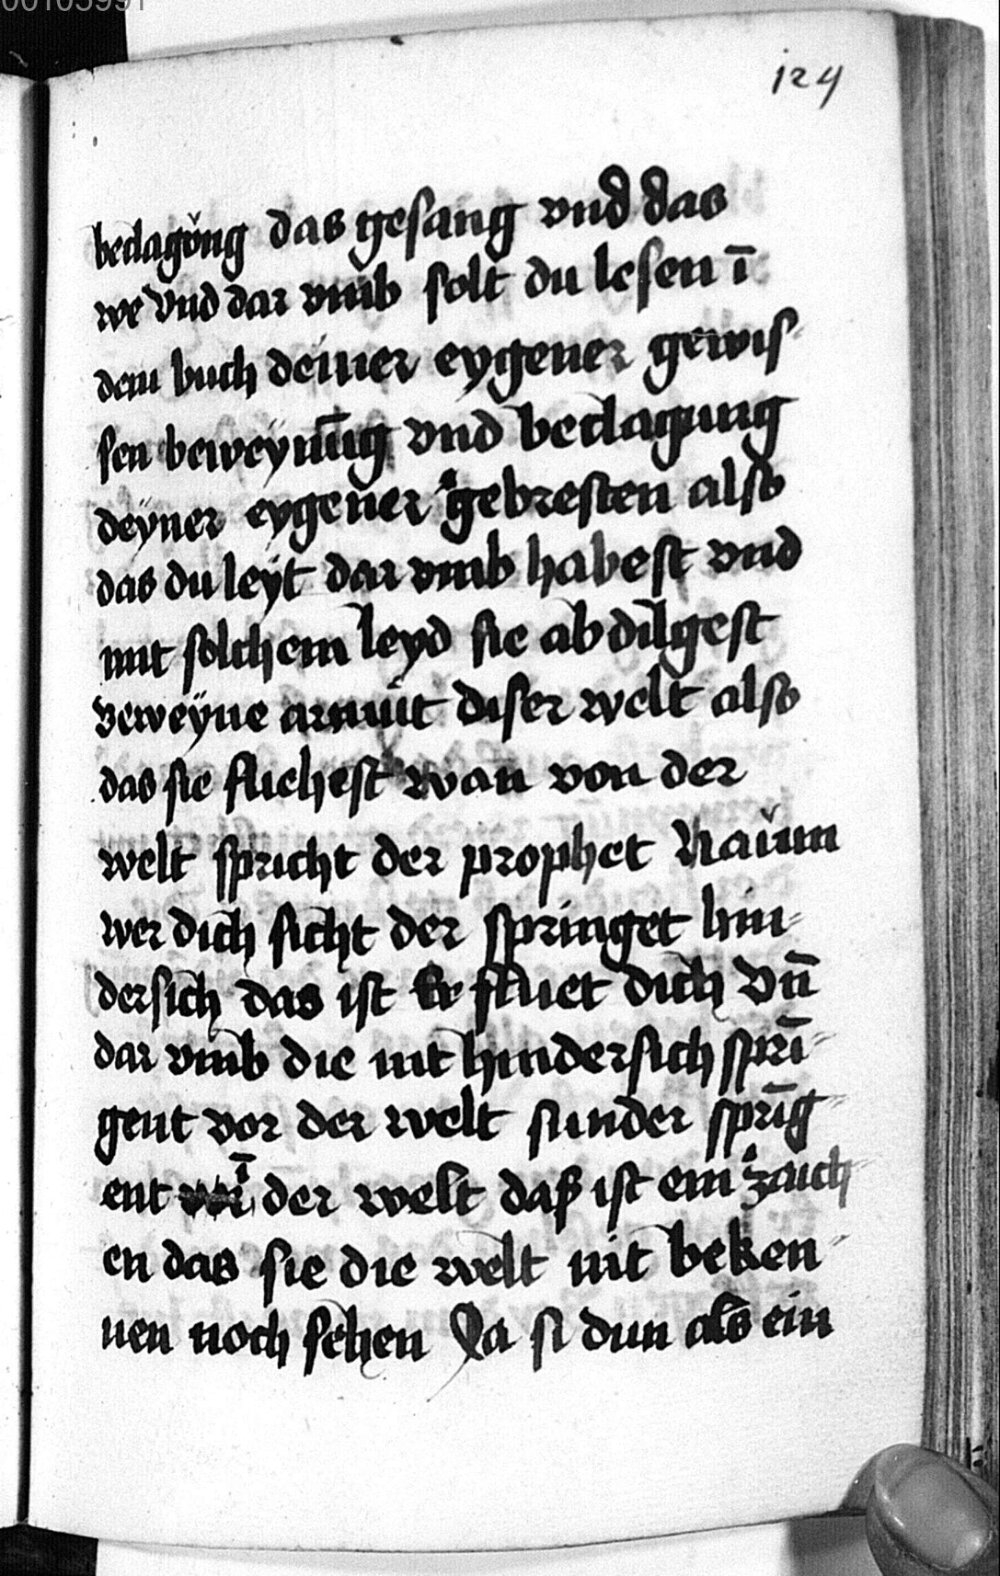 00103991
124
beclagǒng das gesang vnd das
we Vnd dar vmb solt du lesen ī
dem buch deiner eygener gewis
sen beweynūg vnd beclagung
deyner eygener gebresten also
das du leyt dar vmb habest vnd
mit solchem leyd sie ab dilgest
Beweyne armut diser welt also
das sie fliehest wan von der
welt spricht der prophet Naům
wer dich sicht der springet hin-
dersich das ist Er fluet dich Vn̄
dar vmb die nit hindersich sprī-
gent vor der welt sunder sprīg-
ent ī der welt daß ist ein zaich-
en das sie die welt nit beken-
nen noch sehen Ja si dun als ein